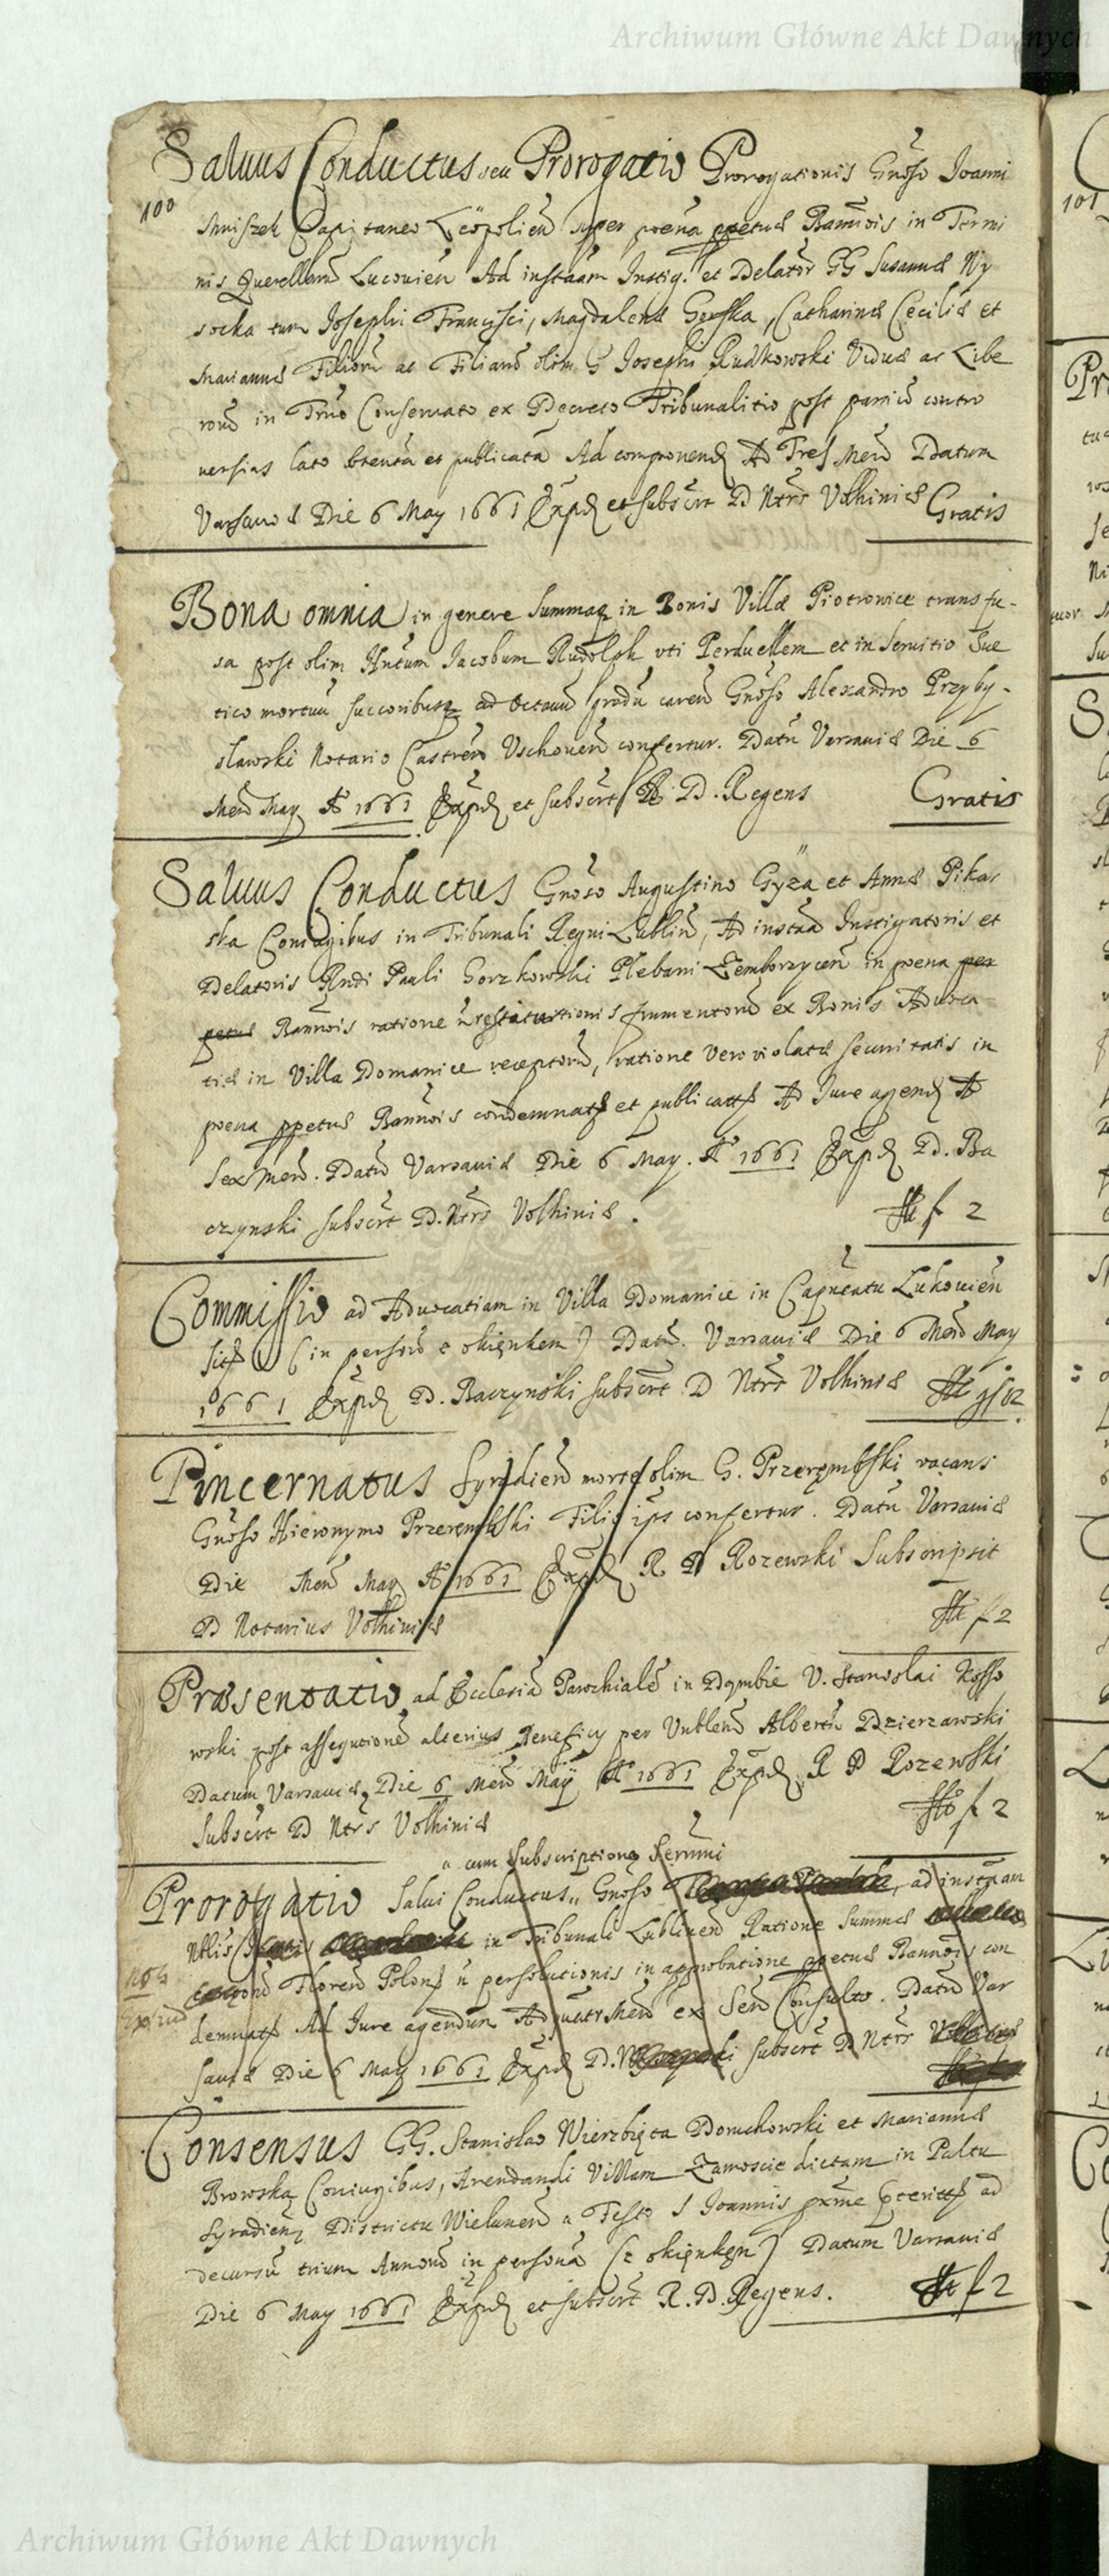 Archiwum Główne Akt Dawnych
Saluus Conductus seu Prorogatio Prorogationis Gnoso Joanni
100
Mniszek Capitaneo Leopolien super poena ppetuæ Bannois in Termi
nis Querellarū Lucouien Ad instāam Instig. et Delator GG Susannæ Wy
socka tum Josephi Francisci, Magdalenæ Gorska, Catharinæ Ceciliæ et
Mariannæ Filiorū ac Filiarū olim G Josephi Rudkowski Viduæ ac Libe
rorū in Trno Conseruato ex Decreto Tribunalitio post parciū contro
uersias lato obtenta et publicata Ad componend Ad Tres Mens Datum
Varsauiæ Die 6 May 1661 Exped et subscrt D Ntrs Volhiniæ Gratis
Bona omnia in genere Summaq in Bonis Villæ Piotrowice transfu-
sa post olim Jacobum Rudolph vti Perduellem et in Seruitio Sue
tico mortuū succoribusq ad octauū gradū caren Gnoso Alexandro Przyby-
slawski Notario Castren Vschouen confertur. Datū Varsauiæ Die 6
Mens May A 1661 Exped et subscrt R. D. Regens Gratis
Saluus Conductus Gnoso Augustino Gyza et Annæ Pikar
ska Coniugibus in Tribunali Regni Lublin, Ad instāa Instigatoris et
Delatoris Rndi Pauli Gorzkowski Plebani Zemborzycen in poena per
petuæ Bannois ratione n restitutionis frumentorū ex Bonis Aduoca
tiæ in Villa Domanice receptorū, ratione vero violatæ securitatis in
poena ppetuæ Bannois condemnats et publicatts Ad Jure agend Ad
Sex Mens. Datū Varsauiæ Die 6 May. A 1661 Exped D. Ba
czynski subscrt D. Ntrs Volhiniæ. f 2
Commissio ad Aduocatiam in Villa Domanice in Capneatu Lukouien
sits (in persorū z okięnkem) Datū. Varsauiæ Die 6 Mens May
1661 Exped D. Baczynski subscrt D Ntrs Volhiniæ
Pincernatus Syradien morte olim G. Przerębski vacans
Gnoso Hieronymo Przerembski Filio ips confertur. Datū Varsauiæ
Die Mens May A 1661 Exped R D Rozewski Subscripsit
D Notarius Volhiniæ f 2
Præsentatio ad Ecclesiā Parochialē in Dąmbie V. Stanislai Kosso
wski post assequtionē alterius Beneficy per Vntlen Albertū Dzierzawski
Datum Varsauiæ Die 6 Mens Maÿ A 1661 Exped R D Rozewski
Subscrt D Ntrs Volhiniæ f 2
cum Subscriptione Sermi
Prorogatio Salui Conductus Gnoso ad instāam
Ntlis in Tribunali Lublinen Ratione Summæ
Floren Polons n persolutionis in approbatione ppetuæ Bannois con
demnats Ad Jure agendum Ad quatr Mens ex Sen Consulto. Datū Var
sauiæ Die 6 May 1661 Exped D. subscrt D Ntrs
Consensus GG. Stanislao Wierzbięta Doruchowski et Mariannæ
Browska Coniugibus, Arendandi Villam Zamoscie dictam in Paltu
Syradien Districtu Wielunen a Festo S Joannis pxme ad
decursū trium Annorū in persona (z okięnkęn) Datum Varsauiæ
Die 6 May 1661 Exped et subscrt R. D. Regens. f 2
Archiwum Główne Akt Dawnych